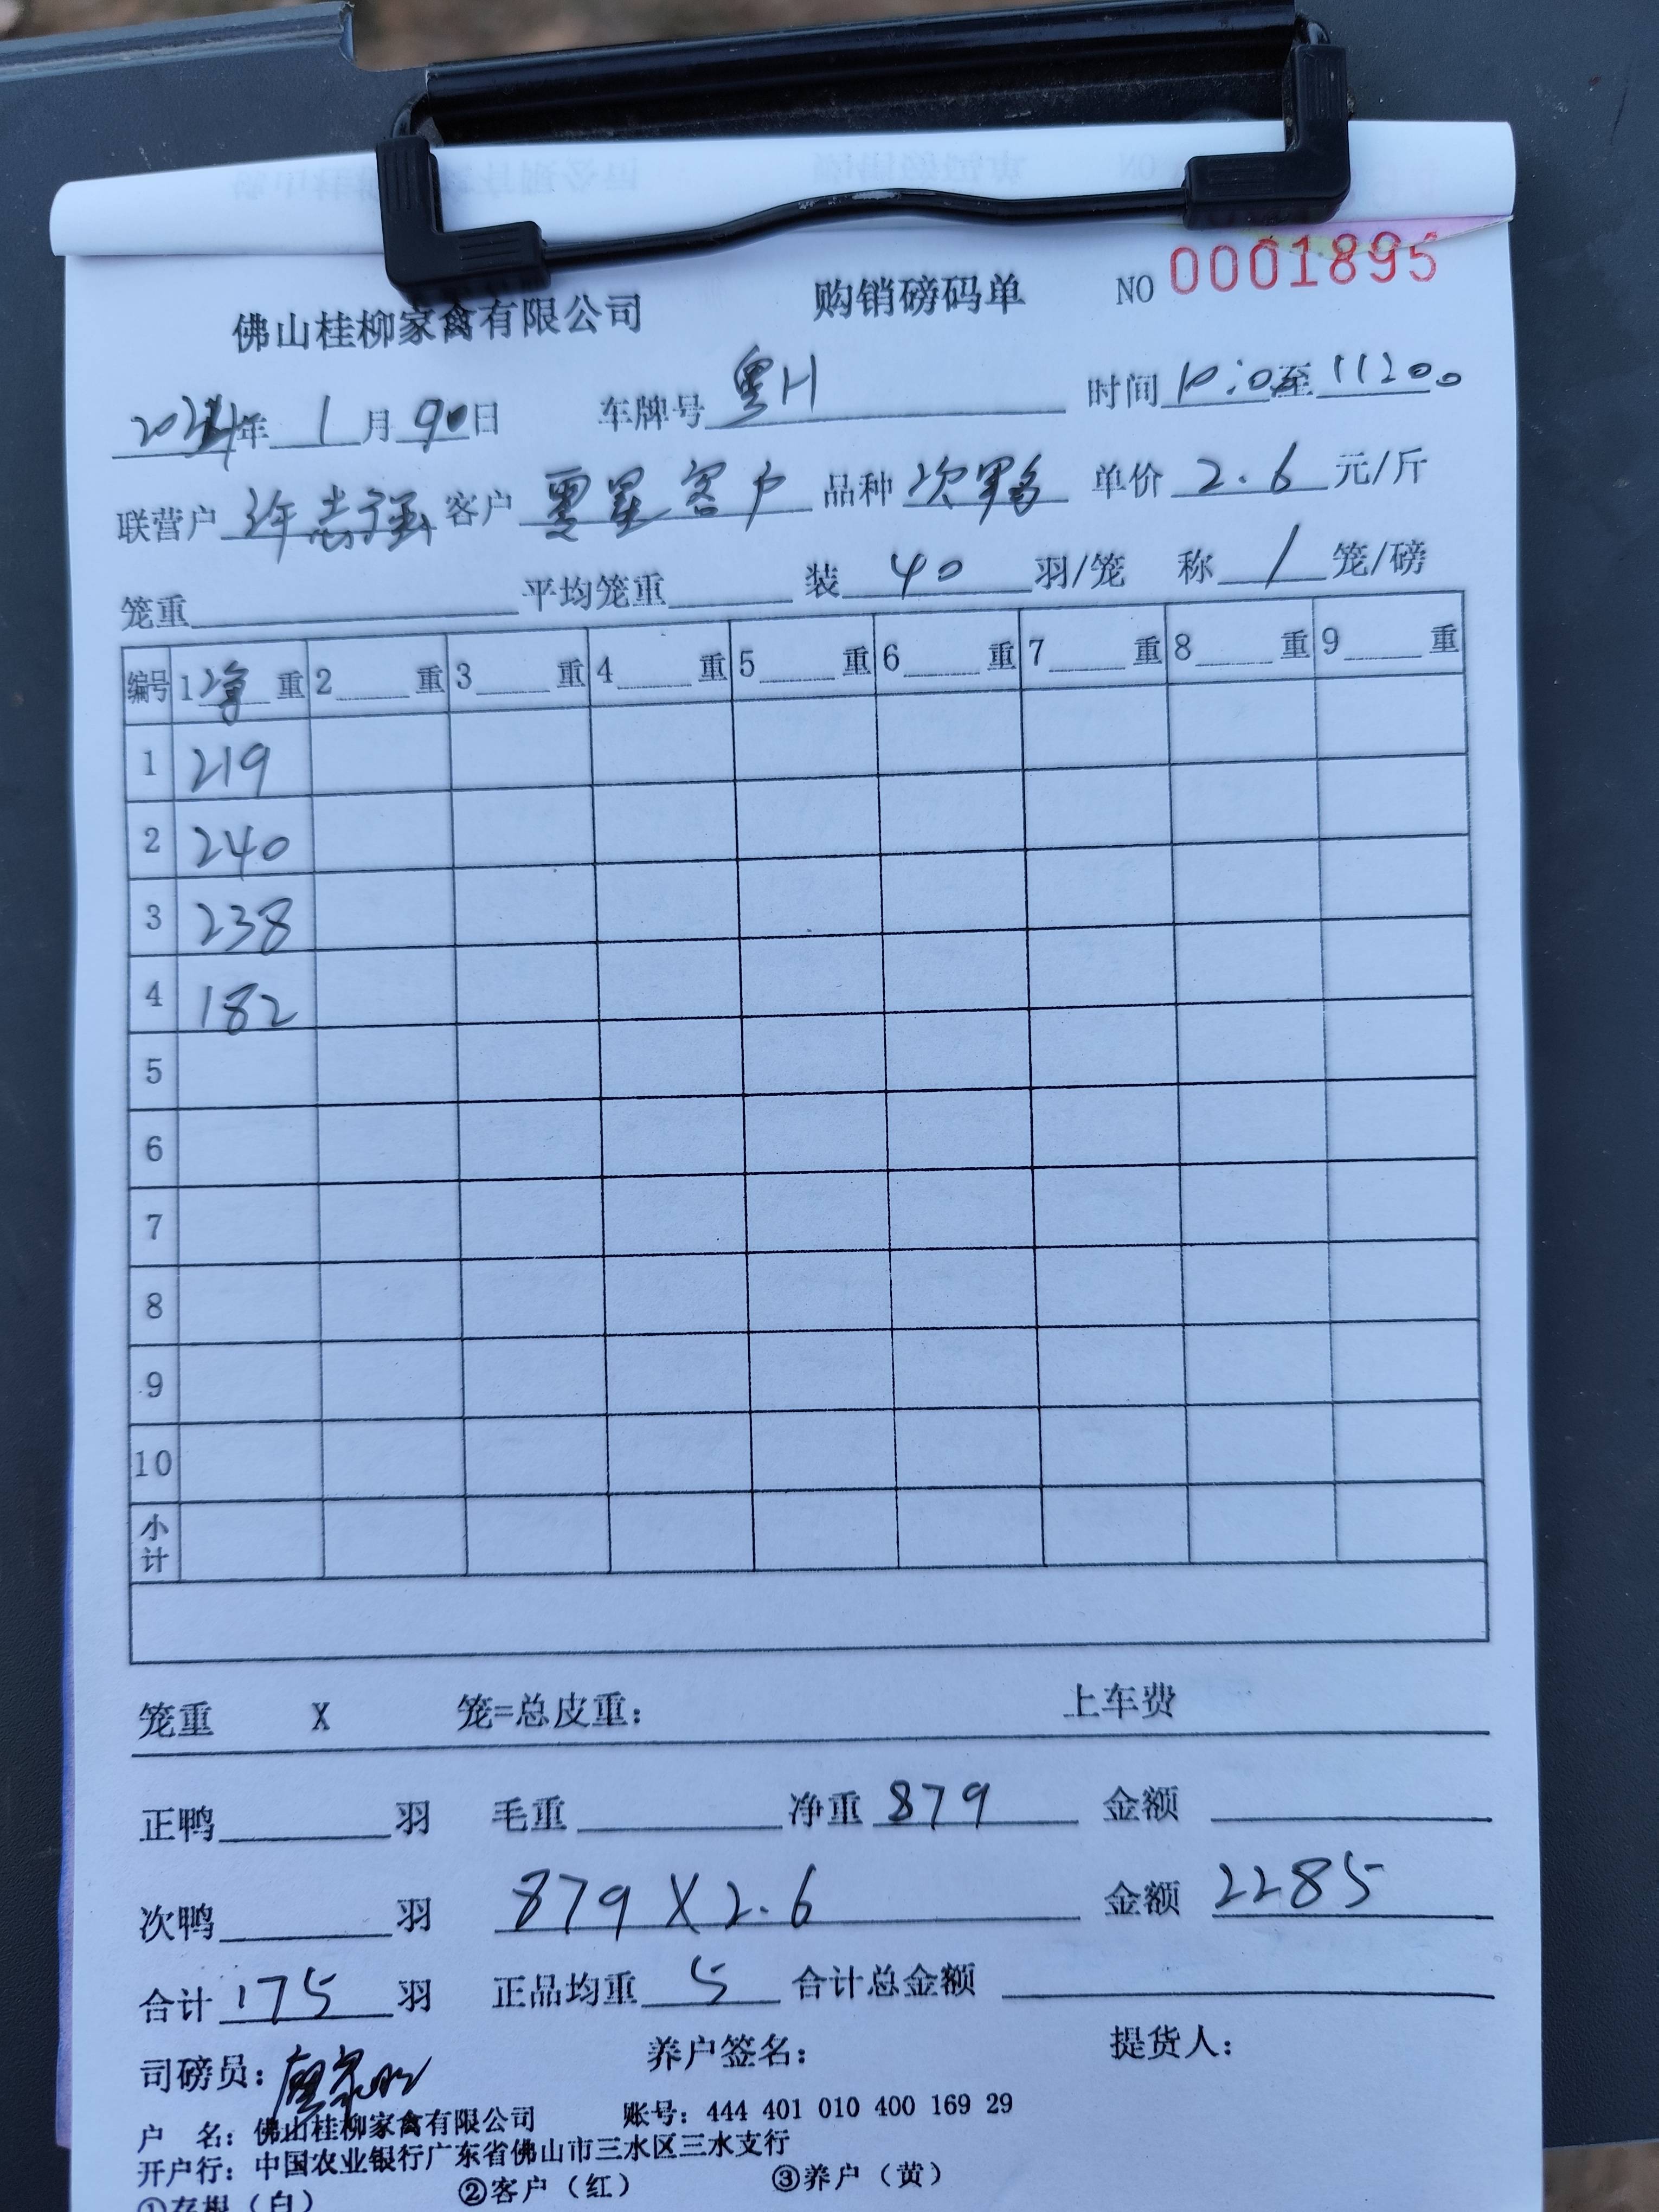 佛山桂柳家禽有限公司 购销磅码单 NO 0001895
2024年1月90日 车牌号 粤H 时间 10:00至11200
联营户 许志强 客户 零星客户 品种 次鸭 单价 2.6 元/斤
笼重 平均笼重 装 40 羽/笼 称 1 笼/磅
编号 1 净 重 2 重 3 重 4 重 5 重 6 重 7 重 8 重 9 重
1 219
2 240
3 238
4 182
5
6
7
8
9
10
小计
笼重 X 笼=总皮重: 上车费
正鸭 羽 毛重 净重 879 金额
次鸭 羽 879 X 2.6 金额 2285
合计 175 羽 正品均重 5 合计总金额
司磅员: 养户签名: 提货人:
户 名: 佛山桂柳家禽有限公司 账号: 444 401 010 400 169 29
开户行: 中国农业银行广东省佛山市三水区三水支行
①存根(白) ②客户(红) ③养户(黄)